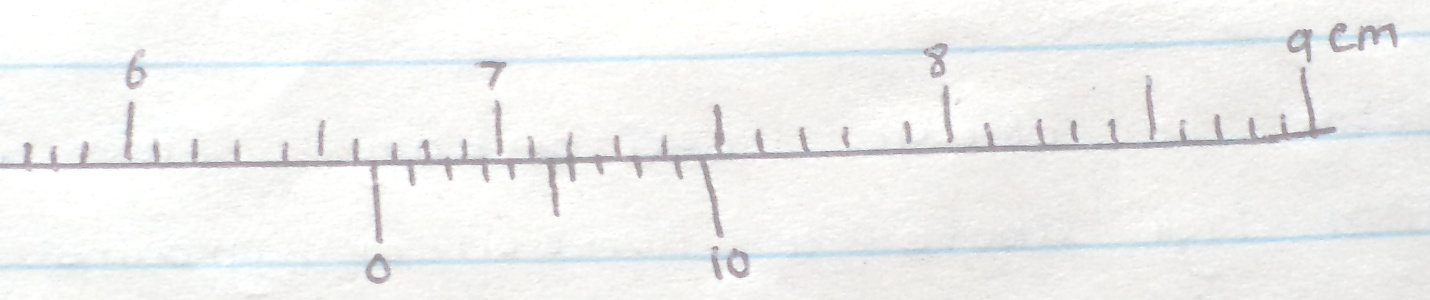 6 7 8 9 cm
0 10